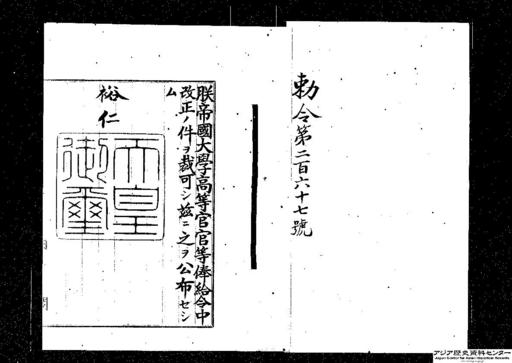 勅令第二百六十七號
朕帝國大學高等官官等俸給令中
改正ノ件ヲ裁可シ玆ニ之ヲ公布セシ
ム
裕仁
天皇
御璽
アジア歴史資料センター
Japan Center for Asian Historical Records